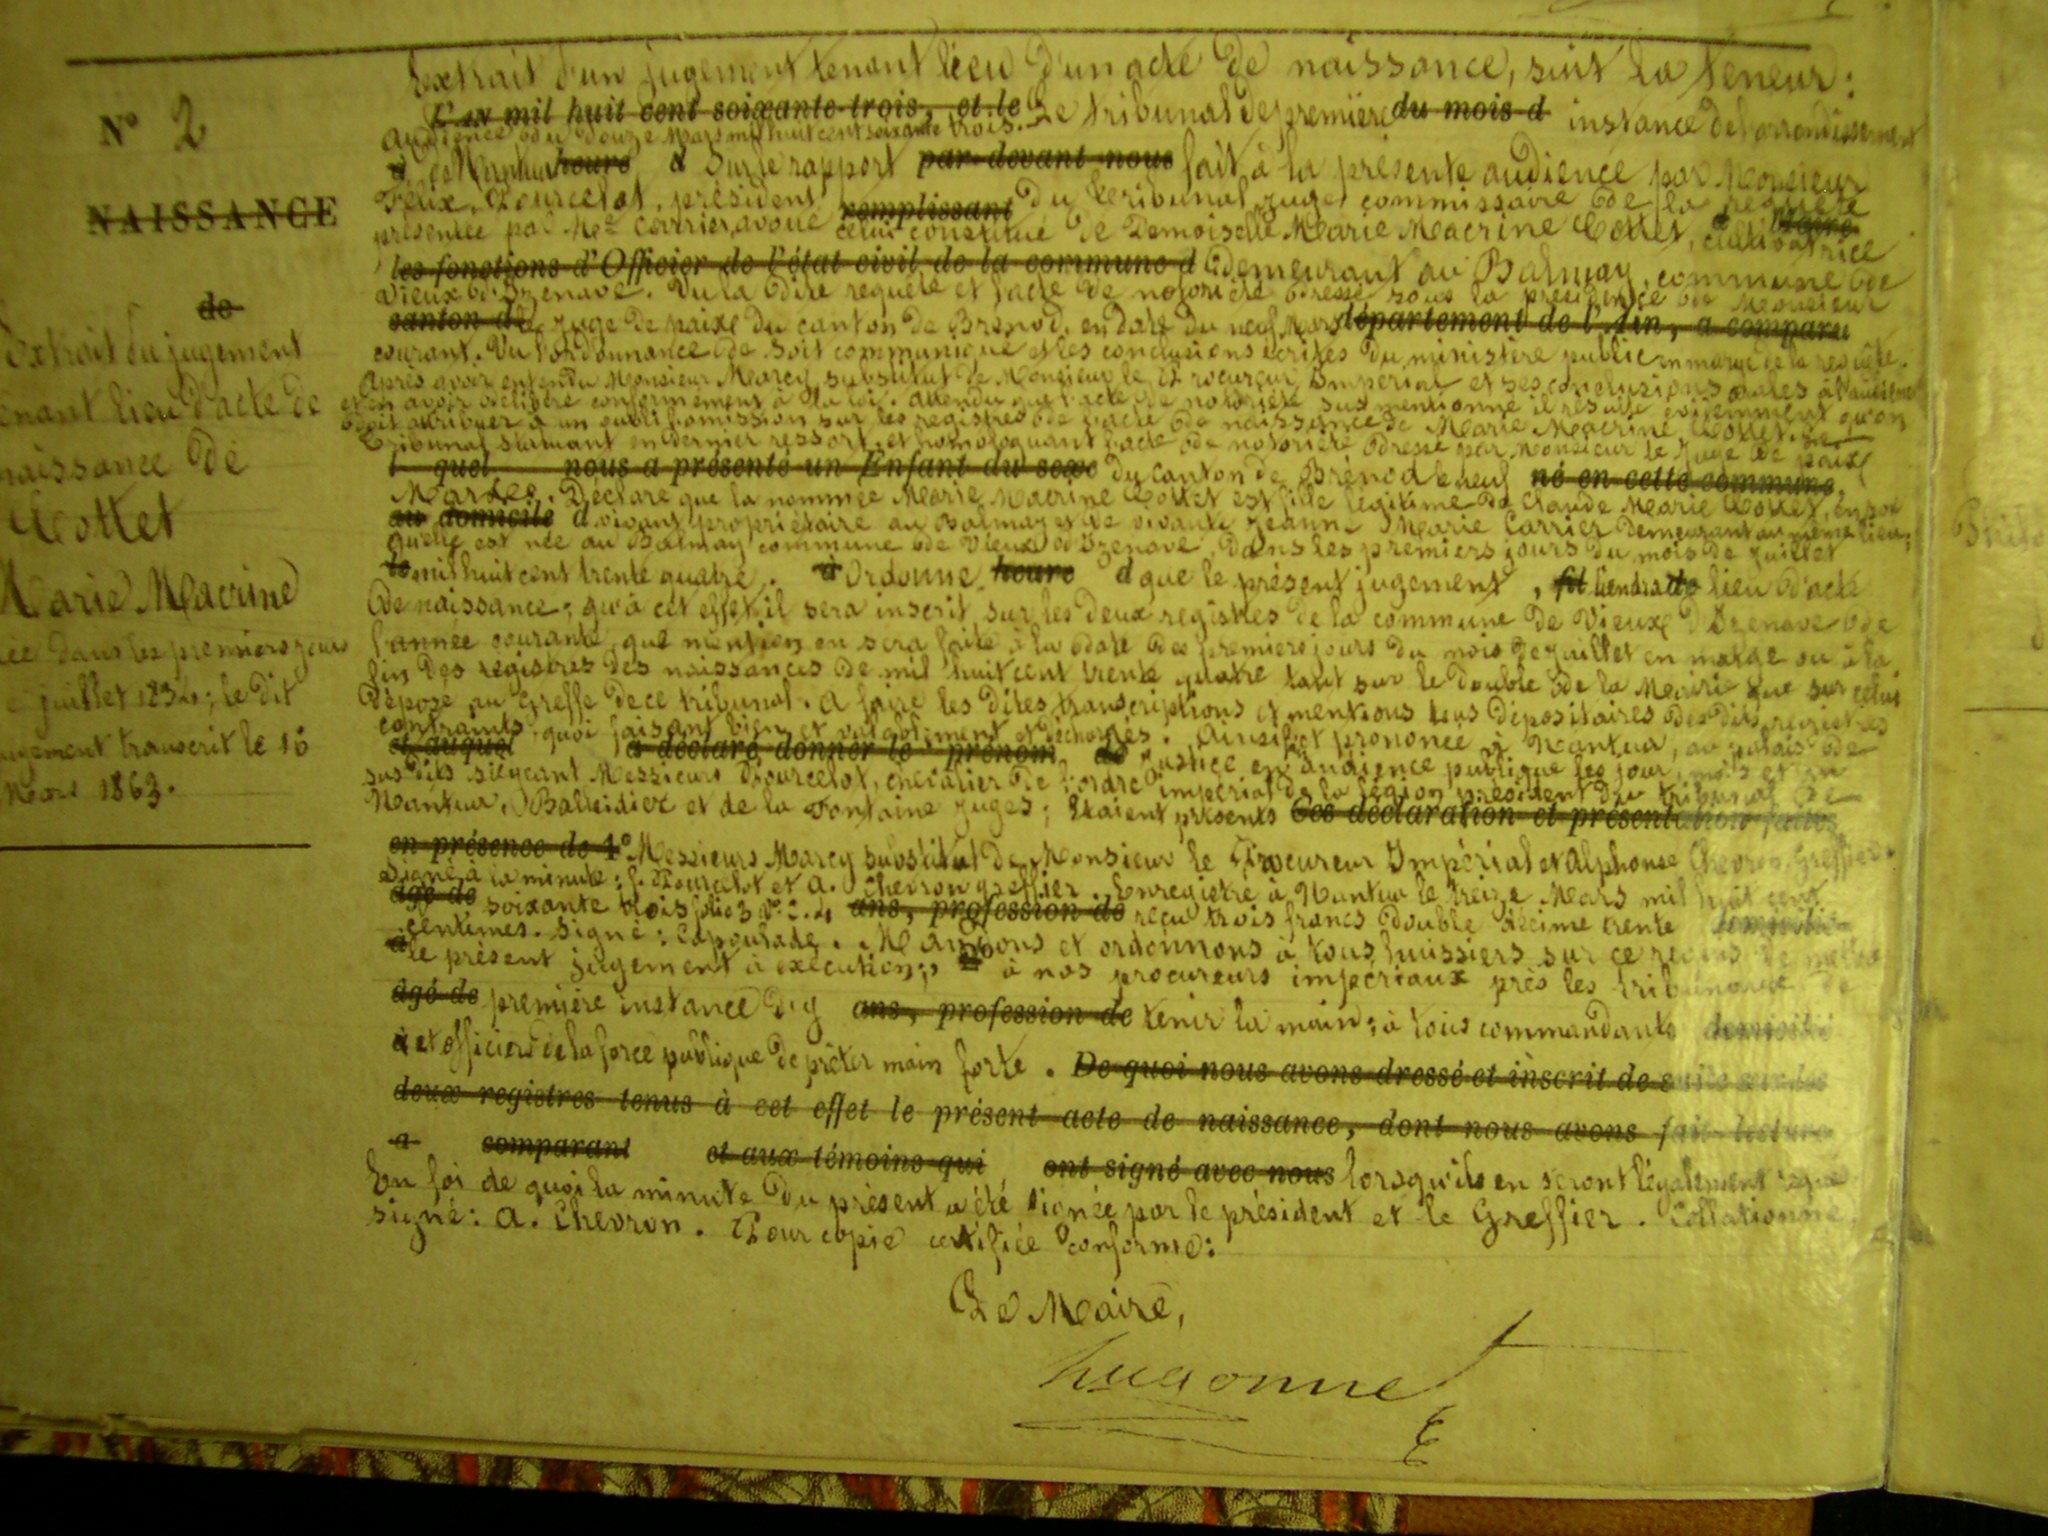 Extrait d'un jugement tenant lieu d'un acte de naissance, suit la teneur:
L'an mil huit cent soixante-trois, et le Le tribunal de première du mois d instance de l'arrondissement
audience du douze Mars mil huit cent soixante trois.
N° 2
d de Nantua heure d Sur le rapport par-devant nous fait à la présente audience par Monsieur
Félix Pourcelot, président remplissant du tribunal juge commissaire de la requête
NAISSANCE
présentée par Me Carrier avoué celui constitué de Demoiselle Marie Macrine Cottet, cultivatrice
les fonctions d'Officier de l'état civil de la commune d demeurant au Balmay, commune de
Vieux d'Izenave. Vu la dite requête et l'acte de notoriété dressé sous la présidence de Monsieur
canton d le juge de paix du canton de Brenod, en date du neuf Mars département de l'Ain, a comparu
courant. Vu l'ordonnance de soit communiqué et les conclusions écrites du ministère public en marge de la requête.
Après avoir entendu Monsieur Marcy substitut de Monsieur le Procureur Impérial et ses conclusions orales à l'audience
et en avoir délibéré conformement à la loi. Attendu que l'acte de notoriété susmentionné il résulte évidemment qu'on
doit attribuer à un oubli l'omission sur les registres de l'acte de naissance de Marie Macrine Cottet. Le
Tribunal statuant en dernier ressort, et homologuant l'acte de notoriété dressé par Monsieur le Juge de paix
l quel nous a présenté un Enfant du sexe du canton de Brénod le neuf né en cette commune,
Mars. Déclare que la nommée Marie Macrine Cottet est fille légitime de Claude Marie Cottet, en son
au domicile d vivant propriétaire au Balmay et de vivante Jeanne Marie Carrier demeurant au même lieu;
qu'elle est née au Balmay commune de Vieux d'Izenave, dans les premiers jours du mois de Juillet
le mil huit cent trente quatre. d Ordonne heure d que le présent jugement, fil tiendra de lieu d'acte
de naissance; qu'à cet effet il sera inscrit sur les deux registres de la commune de Vieux d'Izenave de
l'année courante, que mention en sera faite à la date des premiers jours du mois de juillet en marge ou à la
fin des registres des naissances de mil huit cent trente quatre tant sur le double de la Mairie que sur celui
déposé au Greffe de ce tribunal. A faire les dites transcriptions et mentions tous dépositaires desdits registres
contraints, quoi faisant bien et valablement déchargés. Ainsi fait prononcé à Nantua, au palais de
et auquel a déclaré donner le prénom de Justice en audience publique les jour, mois et an
susdits siégeant Messieurs Pourcelot, chevalier de l'ordre impérial de la légion président du tribunal de
Nantua, Balleidier et de la Fontaine Juges; Etaient présents Ces déclaration et présentation faites
en présence de 1° Messieurs Marcy substitut de Monsieur le Procureur Impérial et Alphonse Chevron Greffier.
Signé à la minute: f. Pourcelot et A. Chevron greffier. Enregistré à Nantua le treize Mars mil huit cent
âgé de soixante trois folio 3 ans, profession de reçu trois francs double décime trente domicilié
centimes. Signé: Capoulade. Mandons et ordonnons à tous huissiers sur ce requis de mettre
à le présent jugement à exécution; 2° à nos procureurs impériaux près les tribunaux de
âgé de première instance d'y ans, profession de tenir la main; à tous commandants domicilié
à et officiers de la force publique de prêter main forte. De quoi nous avons dressé et inscrit de suite sur les
deux registres tenus à cet effet le présent acte de naissance, dont nous avons fait lecture
a comparant et aux témoins qui ont signé avec nous lorsqu'ils en seront légalement requis
En foi de quoi la minute du présent a été signée par le président et le Greffier. Collationné,
signé: A. Chevron. Pour copie certifiée conforme:
Le Maire,
hugonnet
de
Extrait du jugement
tenant lieu d'acte de
naissance de
Cottet
Marie Macrine
née dans les premiers jours
de juillet 1834; le dit
jugement transcrit le 16
Mars 1863.